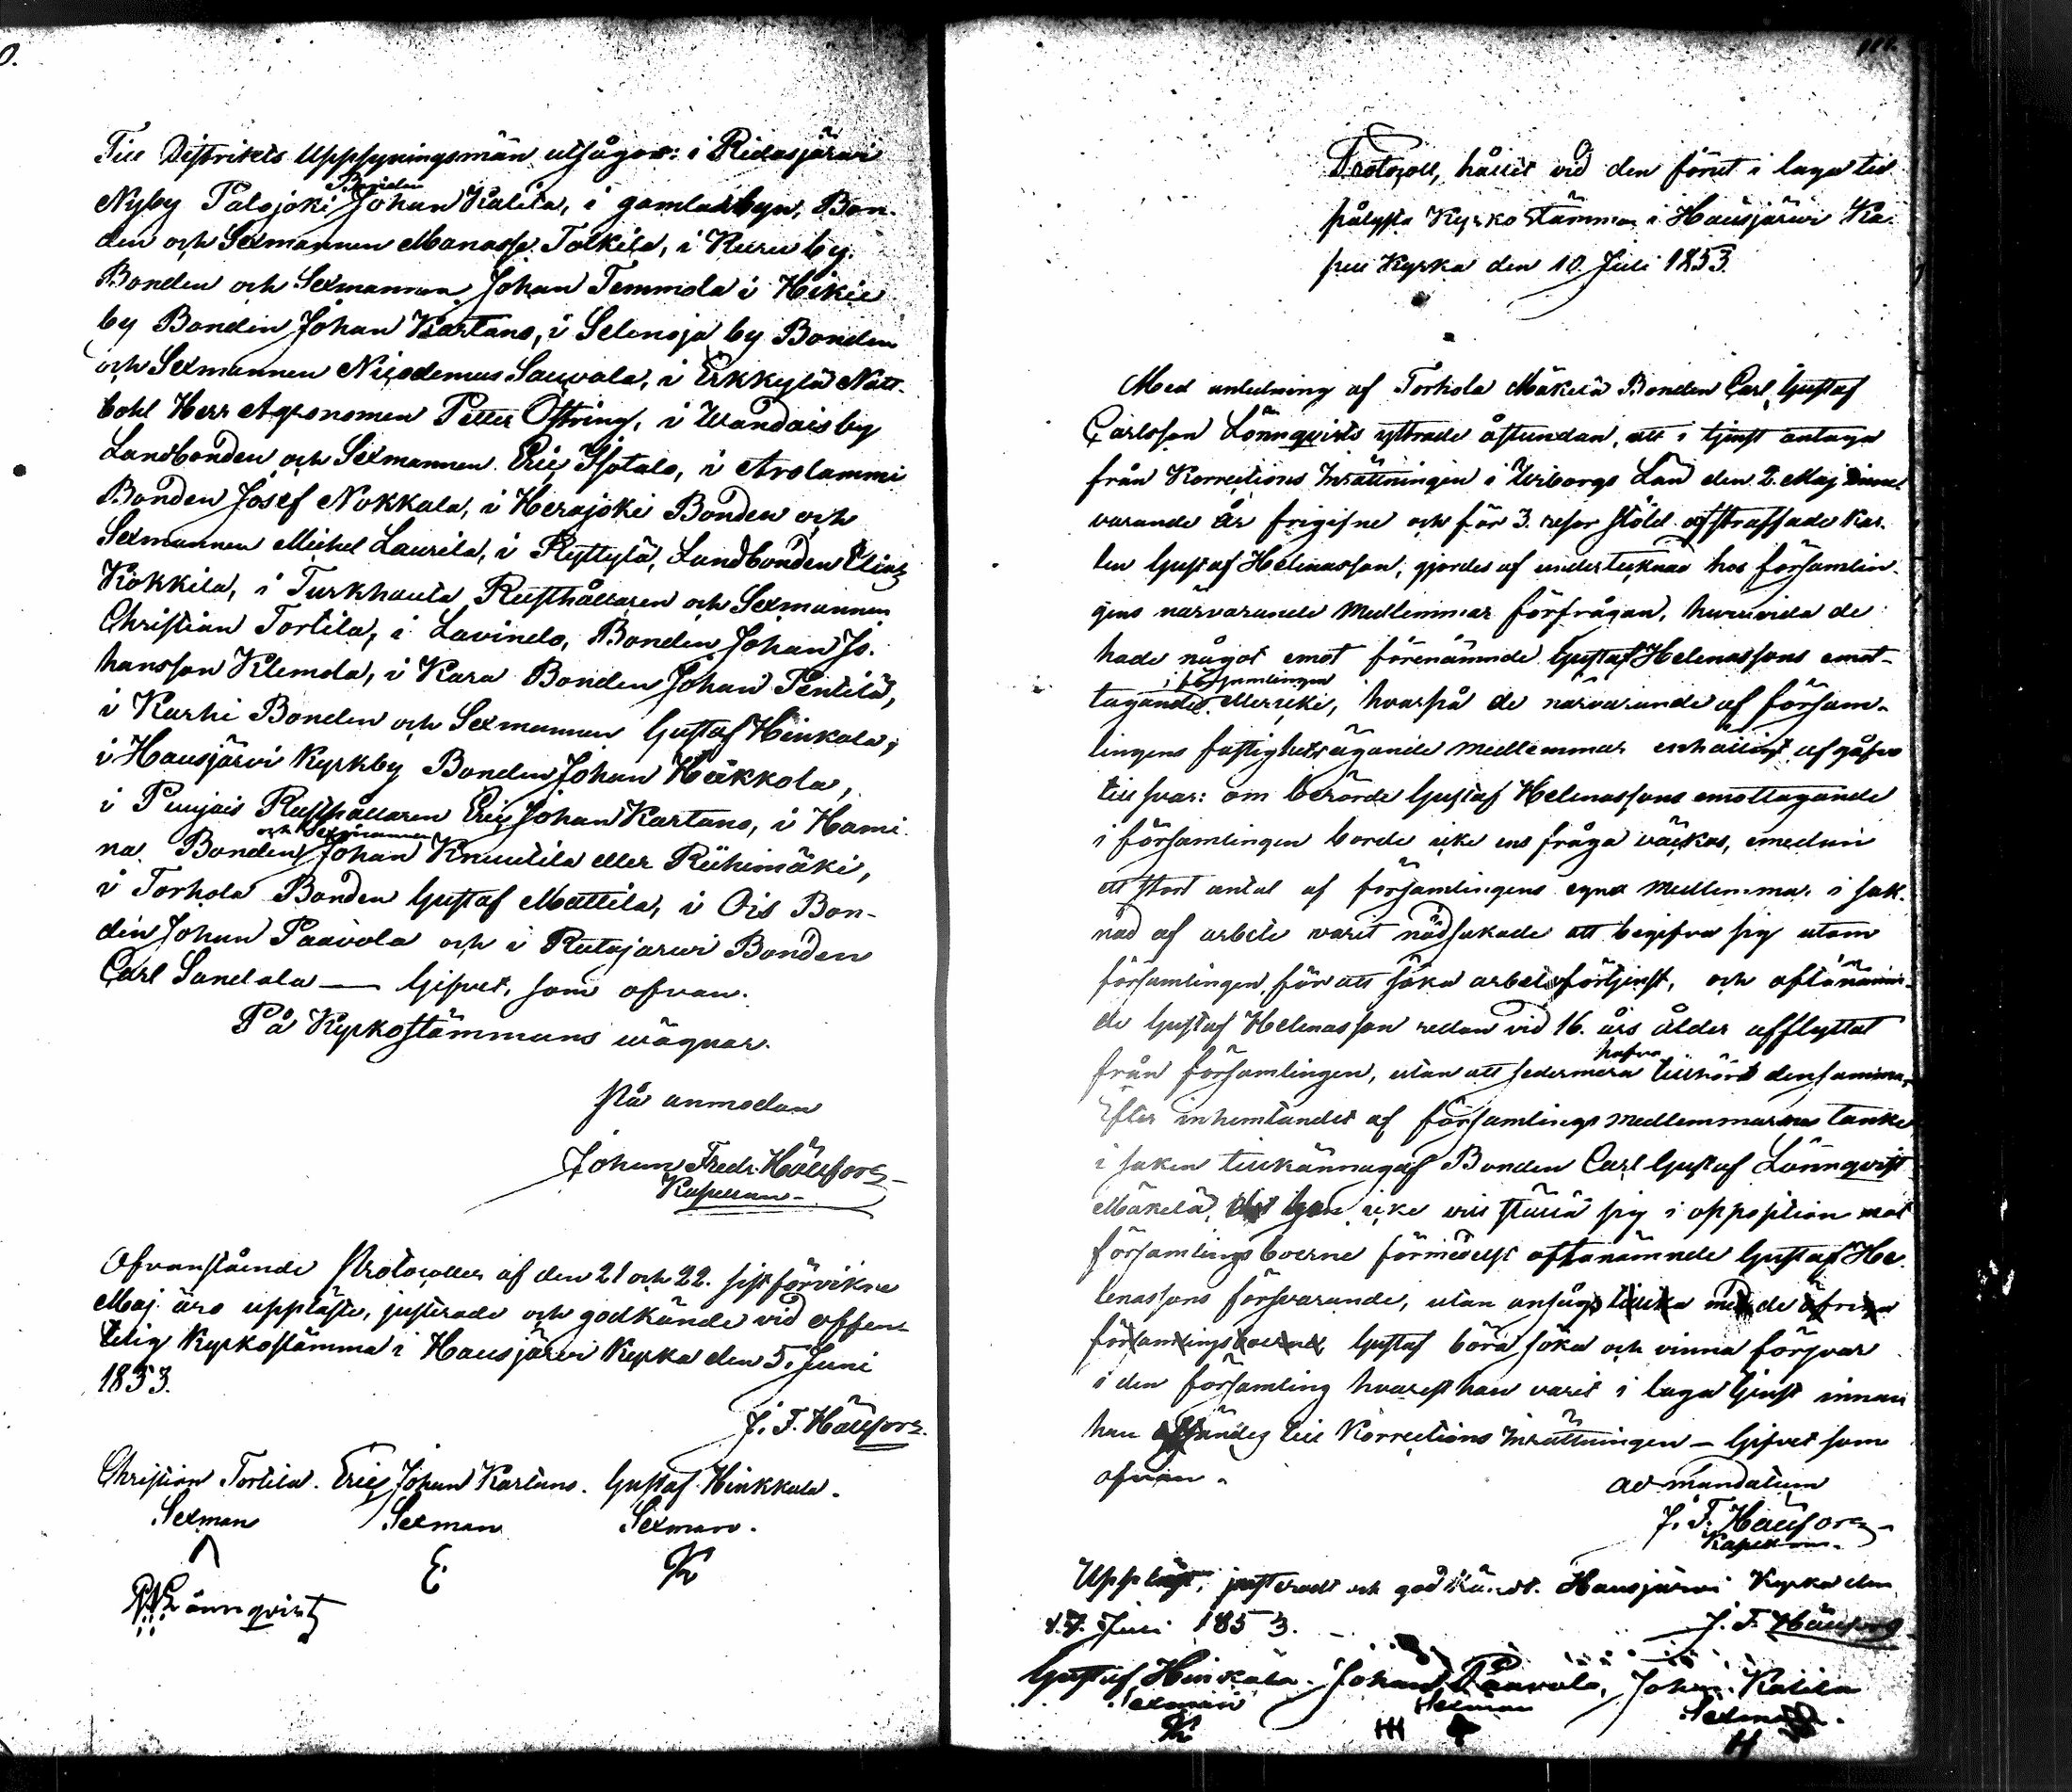 Till Distrikets Uppsyningsmän utsågos: i Ridasjärwi
Nyby Palojoki Bonden Johan Kalila, i gamlabyn, Bon-
den och Sexmannen Manasse Tolkila, i Kuru by.
Bonden och Sexmannen Johan Temmola i Hikiä
by Bonden Johan Kartano, i Selenoja by Bonden
och Sexmannen Nicodemus Sauvala, i Erkkylä Natt-
bohl Herr Agronomen Petter Östring, i Wandais by
Landbonden och Sexmannen Eric Isotalo, i Arolammi
Bonden Josef Nokkala, i Herajoki Bonden och
Sexmannen Michel Laurila, i Ryttylä, Landbonden Elias
Kokkila, i Turkhauta Rusthållaren och Sexmannen
Christian Tortila, i Lavindo, Bonden Johan Jo-
hansson Klemola, i Kara Bonden Johan Pentilä,
i Karhi Bonden och Sexmannen Gustaf Hinkala,
i Hausjärvi Kyrkby Bonden Johan Häkkola,
i Puujais Rusthållaren Eric Johan Kartano, i Hami-
na Bonden och Sexmannen Johan Knuutila eller Riihimäki,
i Torhola Bonden Gustaf Mattila, i Ois Bon-
den Johan Paavola och i Rutajarwi Bonden
Carl Sandala — Gifvet, som ofvan.
På Kyrkostämmans wägnar.
På anmodan
Johan Fredr. Hällfors
Kapellan
Ofvanstående Protocoller af den 21 och 22. sist förvikne
Maj äro uppläste, justerade och godkände vid offen-
telig Kyrkostämma i Hausjärvi Kyrka den 5. Juni
1853.
J. F. Hällfors.
Christian Tortila. Eric Johan Kartano. Gustaf Hinkkala.
Sexman Sexman Sexman.
E.
Lönnqvist
Protocoll, hållit vid den förut i laga tid
pålysta Kyrkostämma i Hausjärwi Ka-
pell Kyrka den 10. Juli 1853.
Med anledning af Torhola Mäkelä Bonden Carl Gustaf
Carlsson Lönnqvists yttrade åstundan, att i tjenst antaga
från Korrections Inrättningen i Wiborgs Län den 2. Maj inne-
varande år frigifne och för 3. resor stöld afstraffade Kar-
len Gustaf Helenasson, gjordes af undertecknad hos församlin-
gens närvarande medlemmar förfrågan, huruvida de
hade något emot förenämnde Gustaf Helenassons emot-
tagande i församlingen eller icke, hvarpå de närvarande af försam-
lingens fastighetsägande medlemmar enhälligt afgåfvo
till svar: om berörde Gustaf Helenassons emottagande
i församlingen borde icke ens fråga väckas, emedan
ett stort antal af församlingens egna medlemmar i sak-
nad af arbete varit nödsakade att begifva sig utom
församlingen, för att söka arbetsförtjenst, och oftanämn-
de Gustaf Helenasson redan vid 16. års ålder afflyttat
från församlingen, utan att sedermera hafva tillhört densamma.
Efter inhemtandet af församlings medlemmarnas tanke
i saken tillkännagaf Bonden Carl Gustaf Lönnqvist
Mäkelä, att han icke vill ställa sig i opposition mot
församlingsboerne förmedelst oftanämnde Gustaf He-
lenassons försvarande, utan ansåg tillika med de öfriga
församlingsboerne, Gustaf böra söka och vinna försvar
i den församling hvarest han varit i laga tjenst innan
han afsändes till Korrections Inrättningen — Gifvet som
ofvan.
ad mandatum
J. F. Hällfors
Kapellan.
Uppläst, justeradt och godkändt. Hausjärvi Kyrka den
17. Juli 1853.
J. F. Hällfors
Gustaf Hinkala. Johan Paavola, Johan Kalila
Sexman Sexman Sexman.